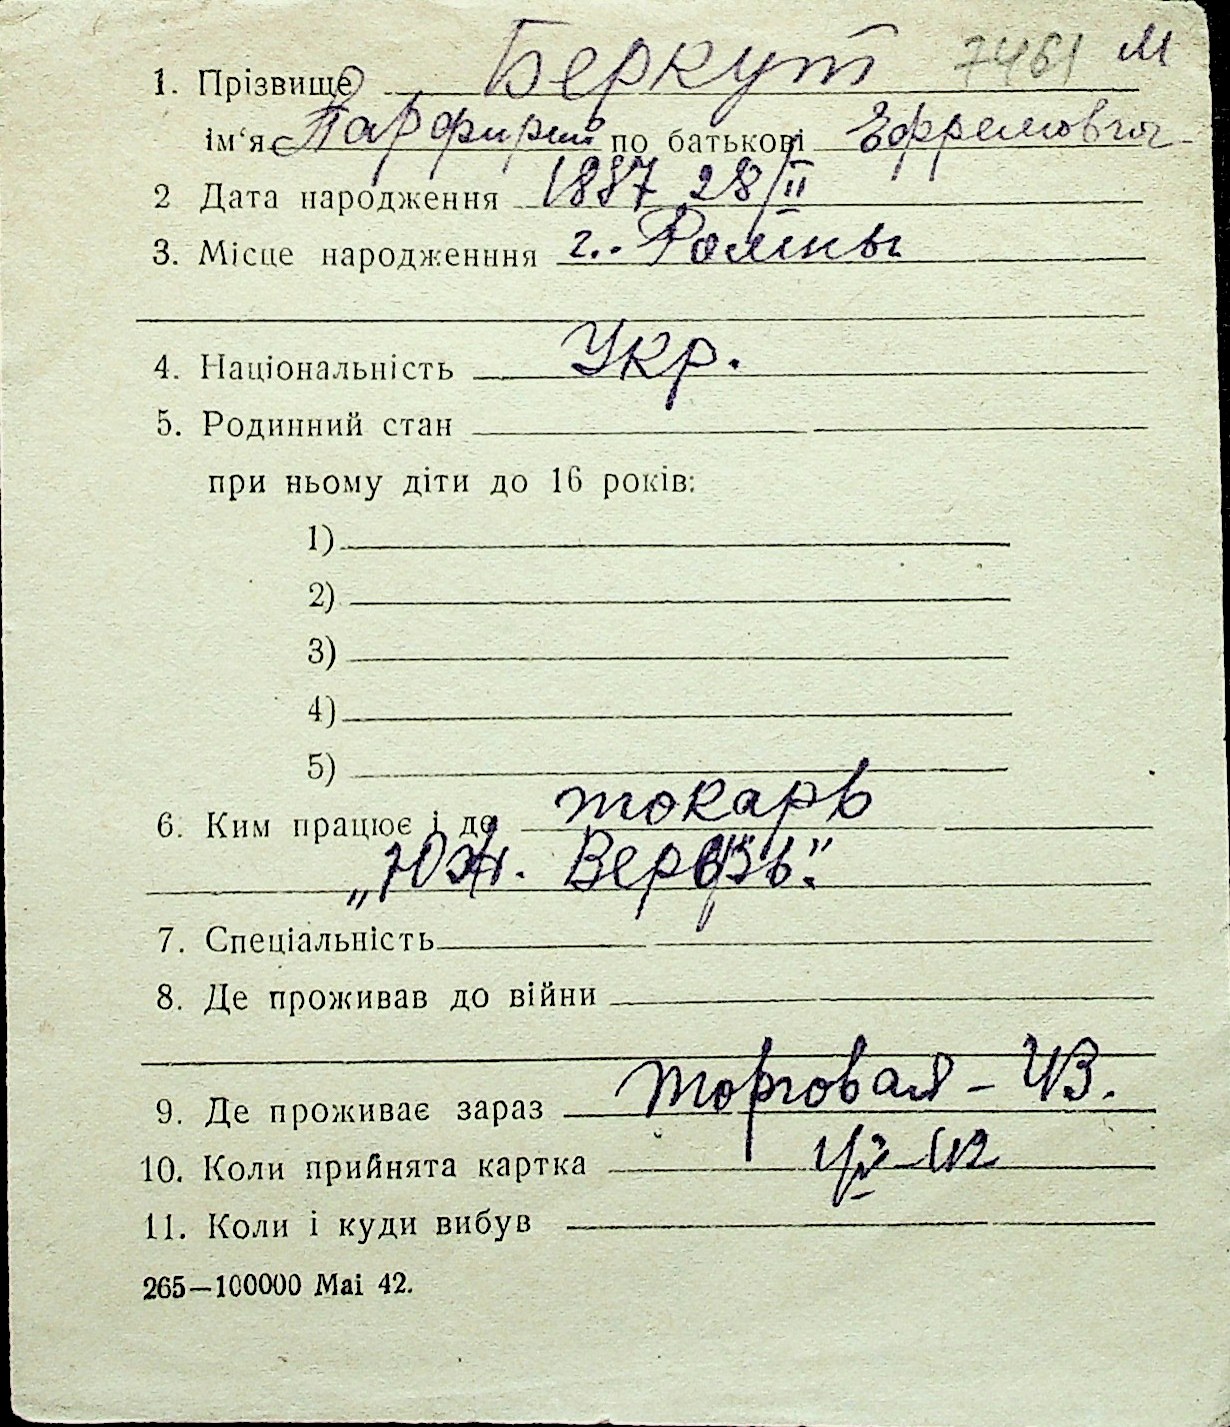 1. Прізвище Беркут 7461 М
ім‘я Парфирий по батькові Ефремович
2 Дата народження 1887 28/II
3. Місце народженння г. Ромны
4. Національність Укр.
5. Родинний стан
при ньому діти до 16 років:
1)
2)
3)
4)
5)
6. Ким працює і де токарь
„Юж. Верфь".
7. Спеціальність
8. Де проживав до війни
9. Де проживає зараз Торговая – 43.
10. Коли прийнята картка
11. Коли і куди вибув
265—100000 Mai 42.